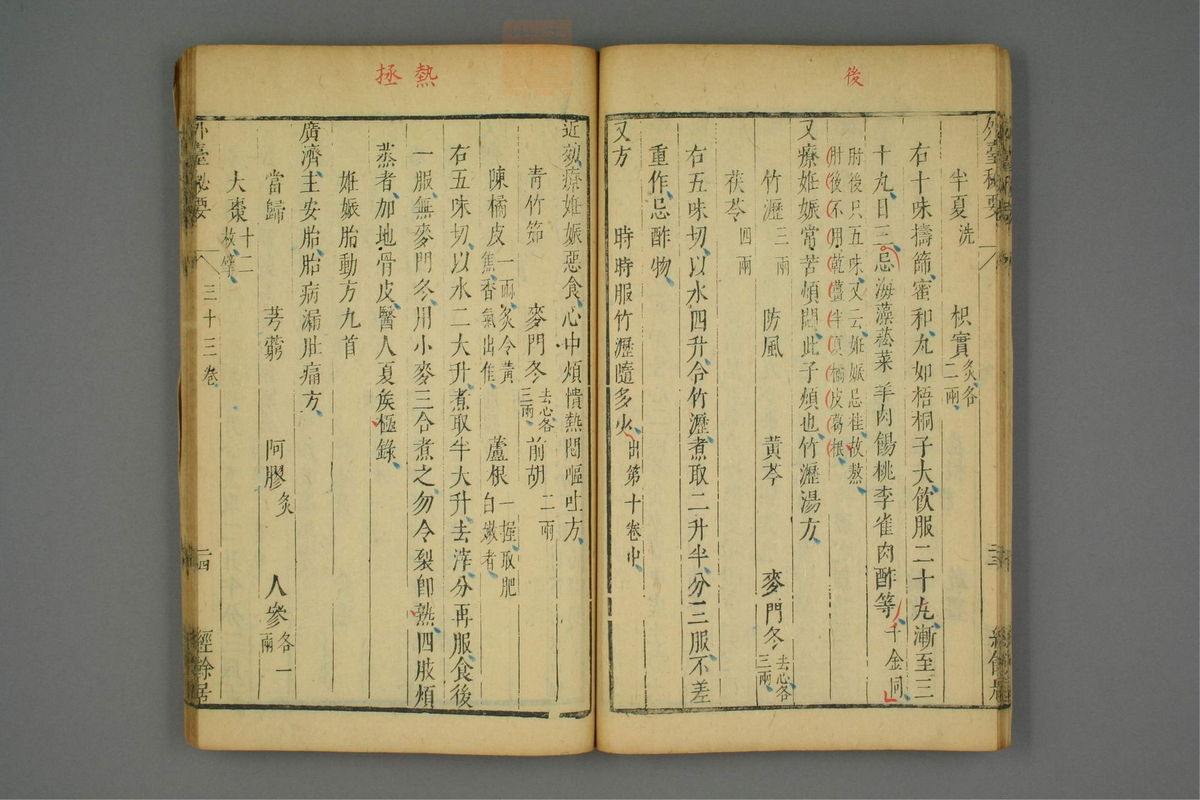 後
外臺秘要
半夏洗 枳實炙各二兩
右十味擣篩蜜和丸如梧桐子大飲服二十丸漸至三
十丸日三忌海藻菘菜羊肉餳桃李雀肉酢等千金同
肘後只五味又云姙娠忌桂故熬
肘後不用乾薑半夏橘皮葛根
又療姙娠常苦煩悶此子煩也竹瀝湯方
竹瀝三兩 防風 黃芩 麥門冬去心各三兩
茯苓四兩
右五味切以水四升合竹瀝煮取二升半分三服不差
重作忌酢物
又方 時時服竹瀝隨多少出第十卷中
熱 拯
近効療姙娠惡食心中煩憒熱悶嘔吐方
青竹筎 麥門冬去心各三兩 前胡二兩
陳橘皮一兩炙令黃焦香氣出佳 蘆根一握取肥白嫩者
右五味切以水二大升煮取半大升去滓分再服食後
一服無麥門冬用小麥三合煮之勿令裂卽熟四肢煩
蒸者加地骨皮醫人夏矦極錄
姙娠胎動方九首
廣濟主安胎胎病漏肚痛方
當歸 芎藭 阿膠炙 人參各一兩
大棗十二枚擘
外臺秘要 三十三卷 二四 經餘居